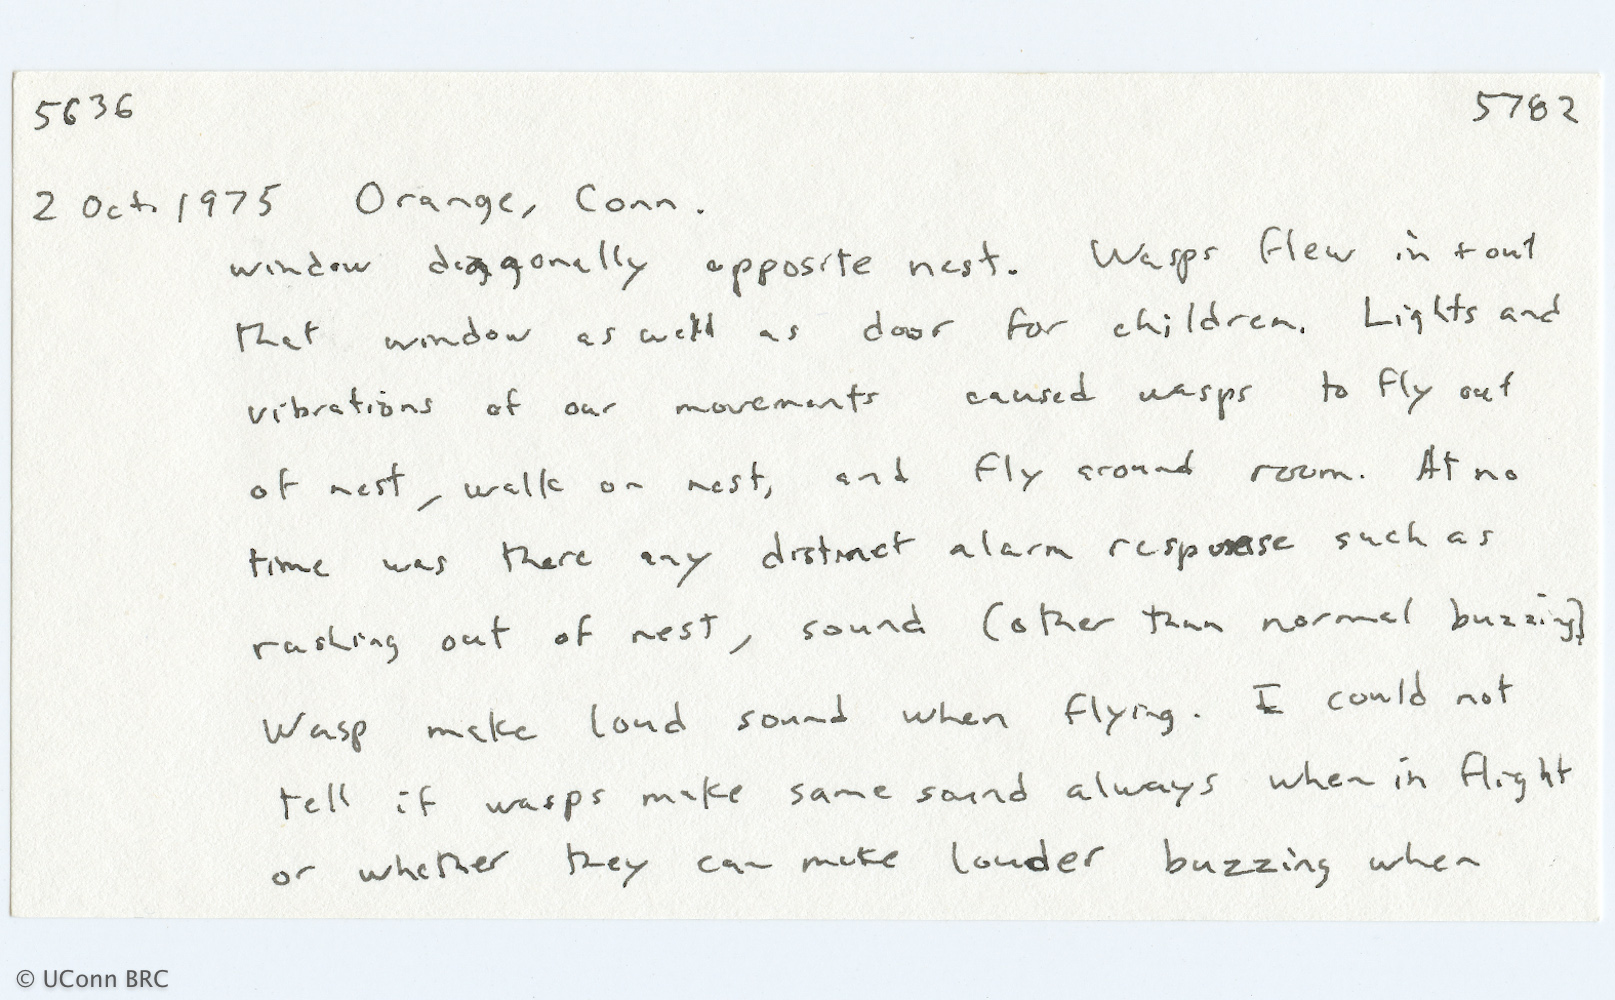 5636 5782
2 Oct. 1975 Orange, Conn.
window diaggonally opposite nest. Wasps flew in + out
that window as well as door for children. Lights and
vibrations of our movements caused wasps to fly out
of nest, walk on nest, and fly around room. At no
time was there any distinct alarm response such as
rushing out of nest, sound (other than normal buzzing)
Wasp make loud sound when flying. I could not
tell if wasps make same sound always when in flight
or whether they can make louder buzzing when
© UConn BRC